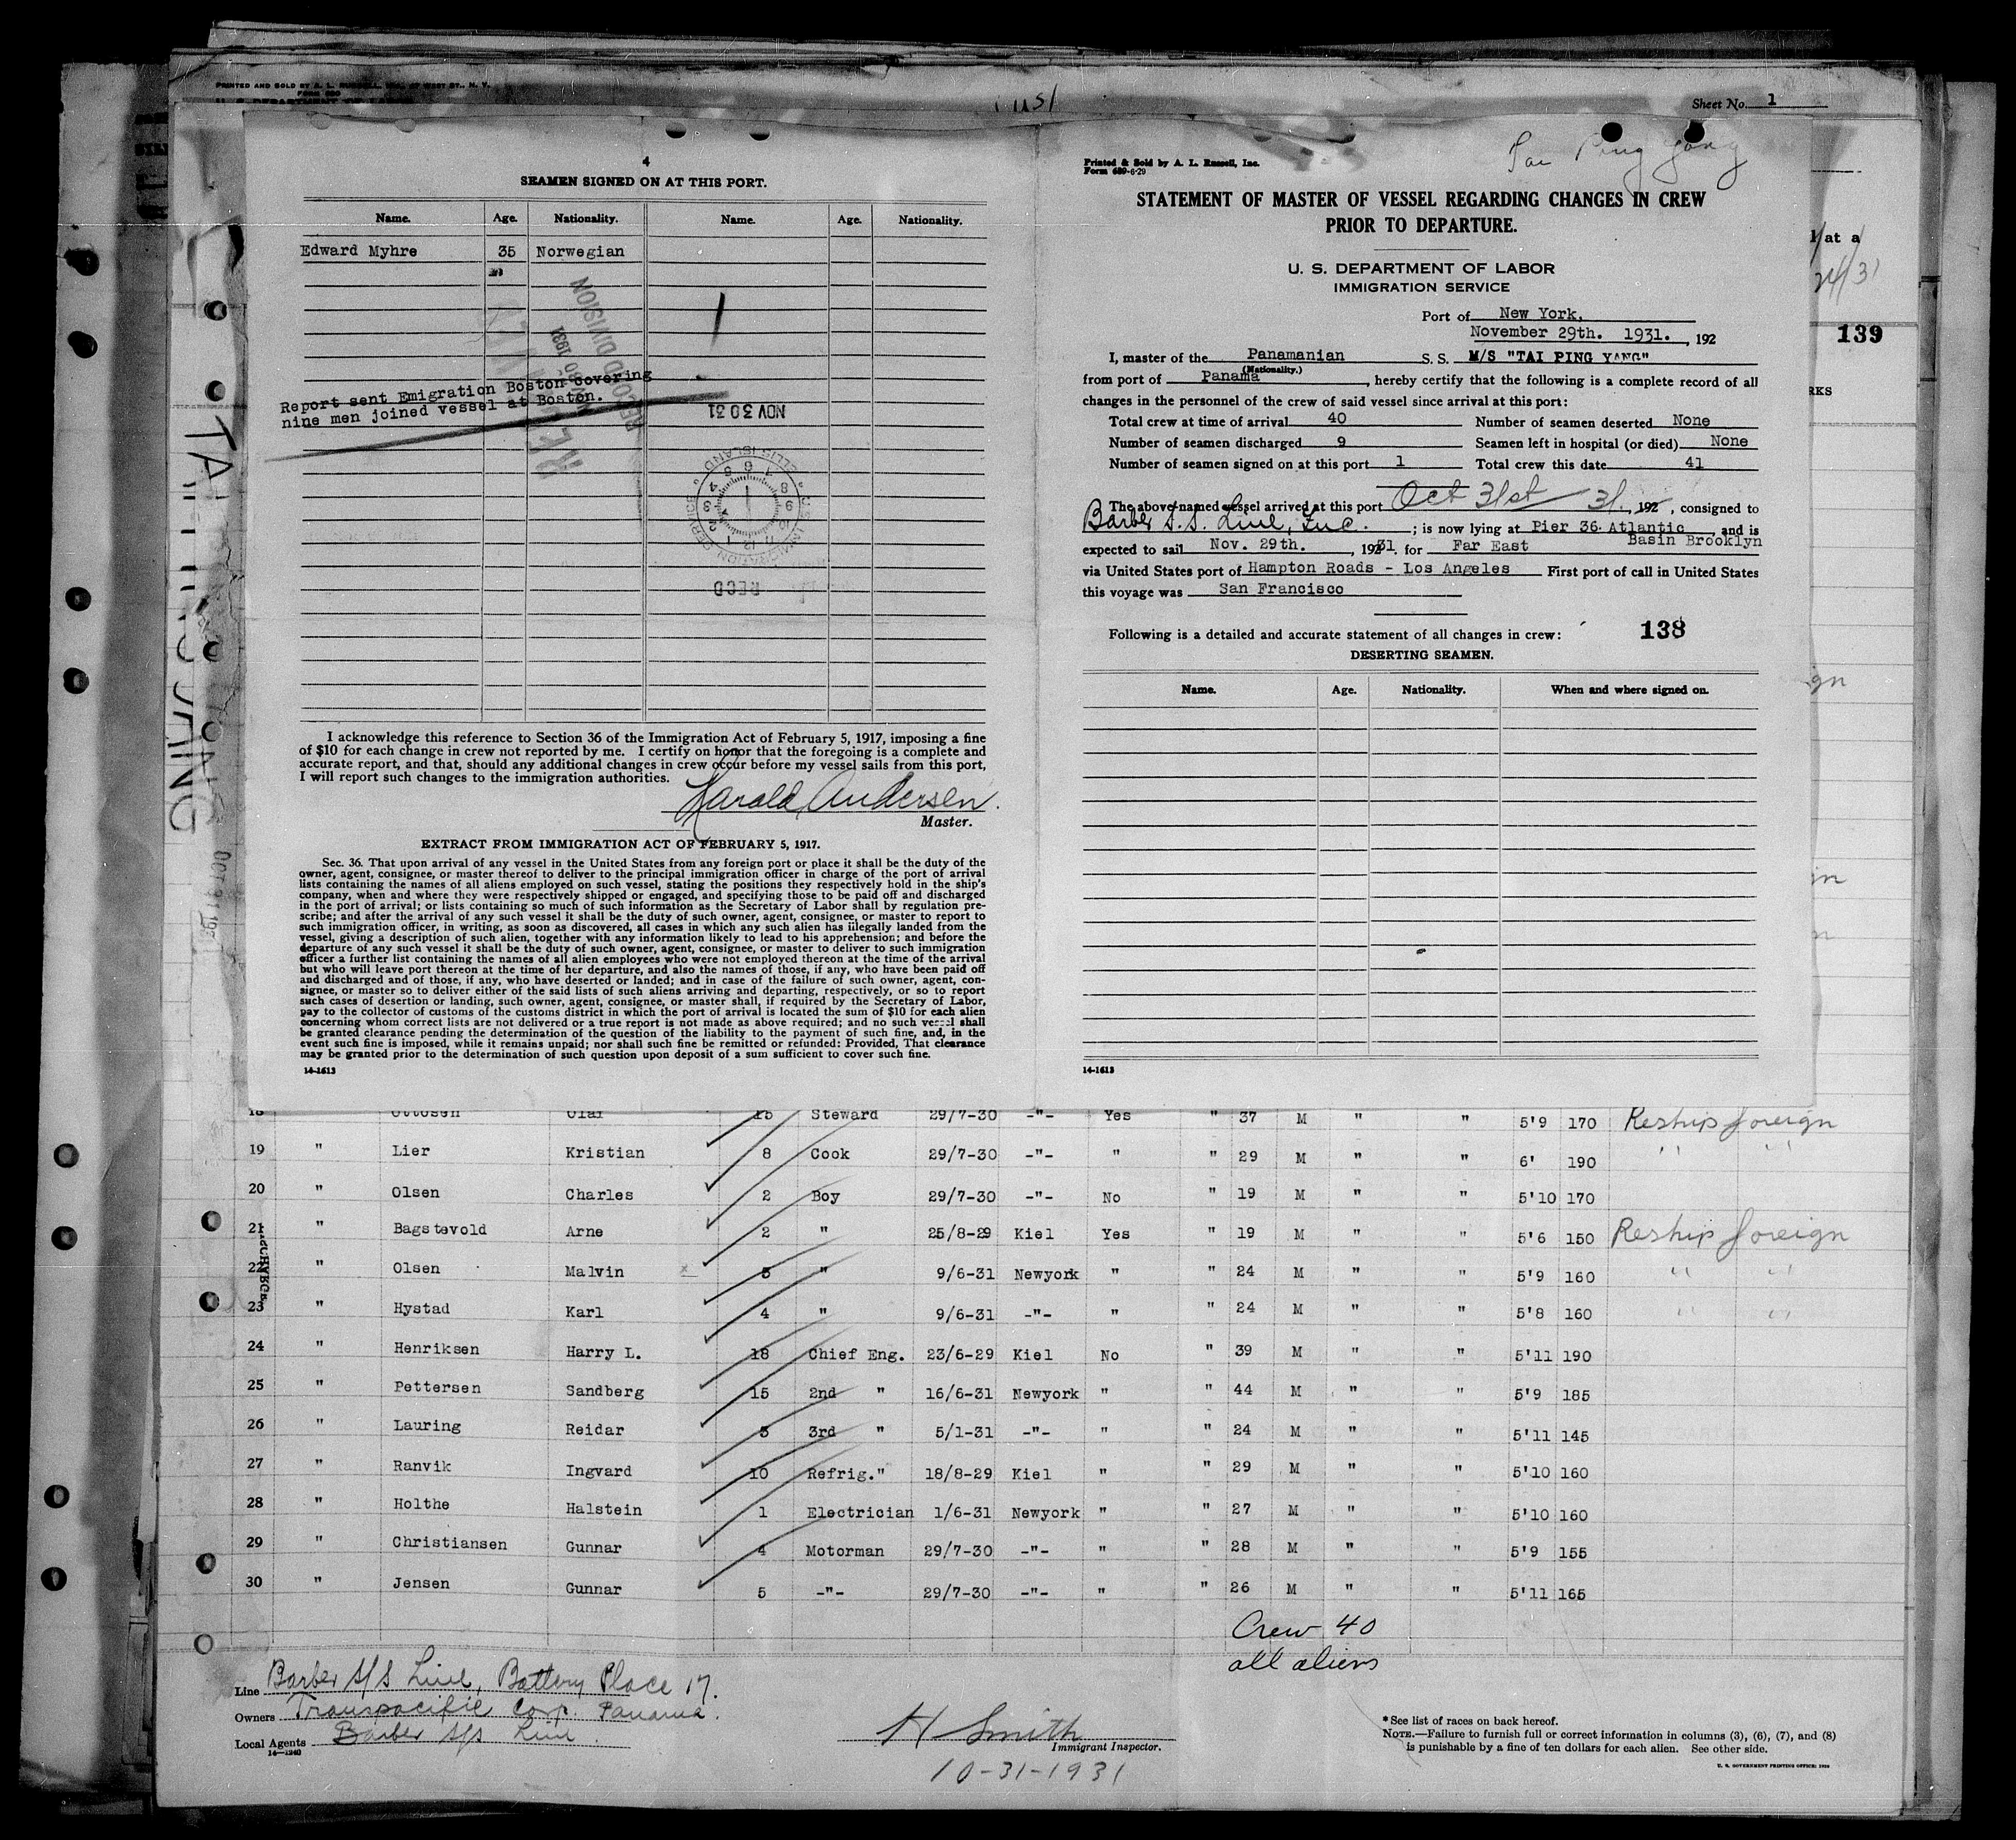 PRINTED AND SOLD BY A. L. RUSSELL, INC., WEST ST., N. Y.
Sheet No. 1
4
SEAMEN SIGNED ON AT THIS PORT.
Name. Age. Nationality. Name. Age. Nationality.
Edward Myhre 35 Norwegian
RECORD DIVISION
NOV 30 1931
Report sent Emigration Boston covering
nine men joined vessel at Boston.
NOV 30 31
U.S. IMMIGRATION SERVICE
ELLIS ISLAND
RECD
I acknowledge this reference to Section 36 of the Immigration Act of February 5, 1917, imposing a fine
of $10 for each change in crew not reported by me. I certify on honor that the foregoing is a complete and
accurate report, and that, should any additional changes in crew occur before my vessel sails from this port,
I will report such changes to the immigration authorities.
Harold Andersen.
Master.
EXTRACT FROM IMMIGRATION ACT OF FEBRUARY 5, 1917.
Sec. 36. That upon arrival of any vessel in the United States from any foreign port or place it shall be the duty of the
owner, agent, consignee, or master thereof to deliver to the principal immigration officer in charge of the port of arrival
lists containing the names of all aliens employed on such vessel, stating the positions they respectively hold in the ship's
company, when and where they were respectively shipped or engaged, and specifying those to be paid off and discharged
in the port of arrival; or lists containing so much of such information as the Secretary of Labor shall by regulation pre-
scribe; and after the arrival of any such vessel it shall be the duty of such owner, agent, consignee, or master to report to
such immigration officer, in writing, as soon as discovered, all cases in which any such alien has illegally landed from the
vessel, giving a description of such alien, together with any information likely to lead to his apprehension; and before the
departure of any such vessel it shall be the duty of such owner, agent, consignee, or master to deliver to such immigration
officer a further list containing the names of all alien employees who were not employed thereon at the time of the arrival
but who will leave port thereon at the time of her departure, and also the names of those, if any, who have been paid off
and discharged and of those, if any, who have deserted or landed; and in case of the failure of such owner, agent, con-
signee, or master so to deliver either of the said lists of such aliens arriving and departing, respectively, or so to report
such cases of desertion or landing, such owner, agent, consignee, or master shall, if required by the Secretary of Labor,
pay to the collector of customs of the customs district in which the port of arrival is located the sum of $10 for each alien
concerning whom correct lists are not delivered or a true report is not made as above required; and no such vessel shall
be granted clearance pending the determination of the question of the liability to the payment of such fine, and, in the
event such fine is imposed, while it remains unpaid; nor shall such fine be remitted or refunded: Provided, That clearance
may be granted prior to the determination of such question upon deposit of a sum sufficient to cover such fine.
14-1613
Tai Ping Yang
Printed & Sold by A. L. Russell, Inc.
Form 689-6-29
STATEMENT OF MASTER OF VESSEL REGARDING CHANGES IN CREW
PRIOR TO DEPARTURE.
U. S. DEPARTMENT OF LABOR
IMMIGRATION SERVICE
Port of New York.
November 29th. 1931. , 192
I, master of the Panamanian S. S. M/S "TAI PING YANG"
(Nationality.)
from port of Panama , hereby certify that the following is a complete record of all
changes in the personnel of the crew of said vessel since arrival at this port:
Total crew at time of arrival 40 Number of seamen deserted None
Number of seamen discharged 9 Seamen left in hospital (or died) None
Number of seamen signed on at this port 1 Total crew this date 41
The above-named vessel arrived at this port Oct 31st 31, 192 , consigned to
Barber S.S. Line, Inc. ; is now lying at Pier 36 Atlantic , and is
Basin Brooklyn
expected to sail Nov. 29th. , 1931. for Far East
via United States port of Hampton Roads - Los Angeles First port of call in United States
this voyage was San Francisco
Following is a detailed and accurate statement of all changes in crew: 138
DESERTING SEAMEN.
Name. Age. Nationality. When and where signed on.
14-1613
at a
24/31
139
RKS
TAI PING YANG
OCT 31 1931
18 Ottosen Olaf 15 Steward 29/7-30 -"- Yes " 37 M " " 5'9 170 Reship foreign
19 " Lier Kristian 8 Cook 29/7-30 -"- " " 29 M " " 6' 190 " "
20 " Olsen Charles 2 Boy 29/7-30 -"- No " 19 M " " 5'10 170
21 " Bagstevold Arne 2 " 25/8-29 Kiel Yes " 19 M " " 5'6 150 Reship foreign
22 " Olsen Malvin x 5 " 9/6-31 Newyork " " 24 M " " 5'9 160 " "
23 " Hystad Karl 4 " 9/6-31 -"- " " 24 M " " 5'8 160 " "
24 " Henriksen Harry L. 18 Chief Eng. 23/6-29 Kiel No " 39 M " " 5'11 190
25 " Pettersen Sandberg 15 2nd " 16/6-31 Newyork " " 44 M " " 5'9 185
26 " Lauring Reidar 3 3rd " 5/1-31 -"- " " 24 M " " 5'11 145
27 " Ranvik Ingvard 10 Refrig." 18/8-29 Kiel " " 29 M " " 5'10 160
28 " Holthe Halstein 1 Electrician 1/6-31 Newyork " " 27 M " " 5'10 160
29 " Christiansen Gunnar 4 Motorman 29/7-30 -"- " " 28 M " " 5'9 155
30 " Jensen Gunnar 5 -"- 29/7-30 -"- " " 26 M " " 5'11 165
Crew 40
all aliens
Line Barber S/S Line, Battery Place 17.
Owners Transpacific Corp. Panama.
Local Agents Barber S/S Line.
14-1240
H Smith
Immigrant Inspector.
10-31-1931
*See list of races on back hereof.
NOTE.—Failure to furnish full or correct information in columns (3), (6), (7), and (8)
is punishable by a fine of ten dollars for each alien. See other side.
U. S. GOVERNMENT PRINTING OFFICE: 1929